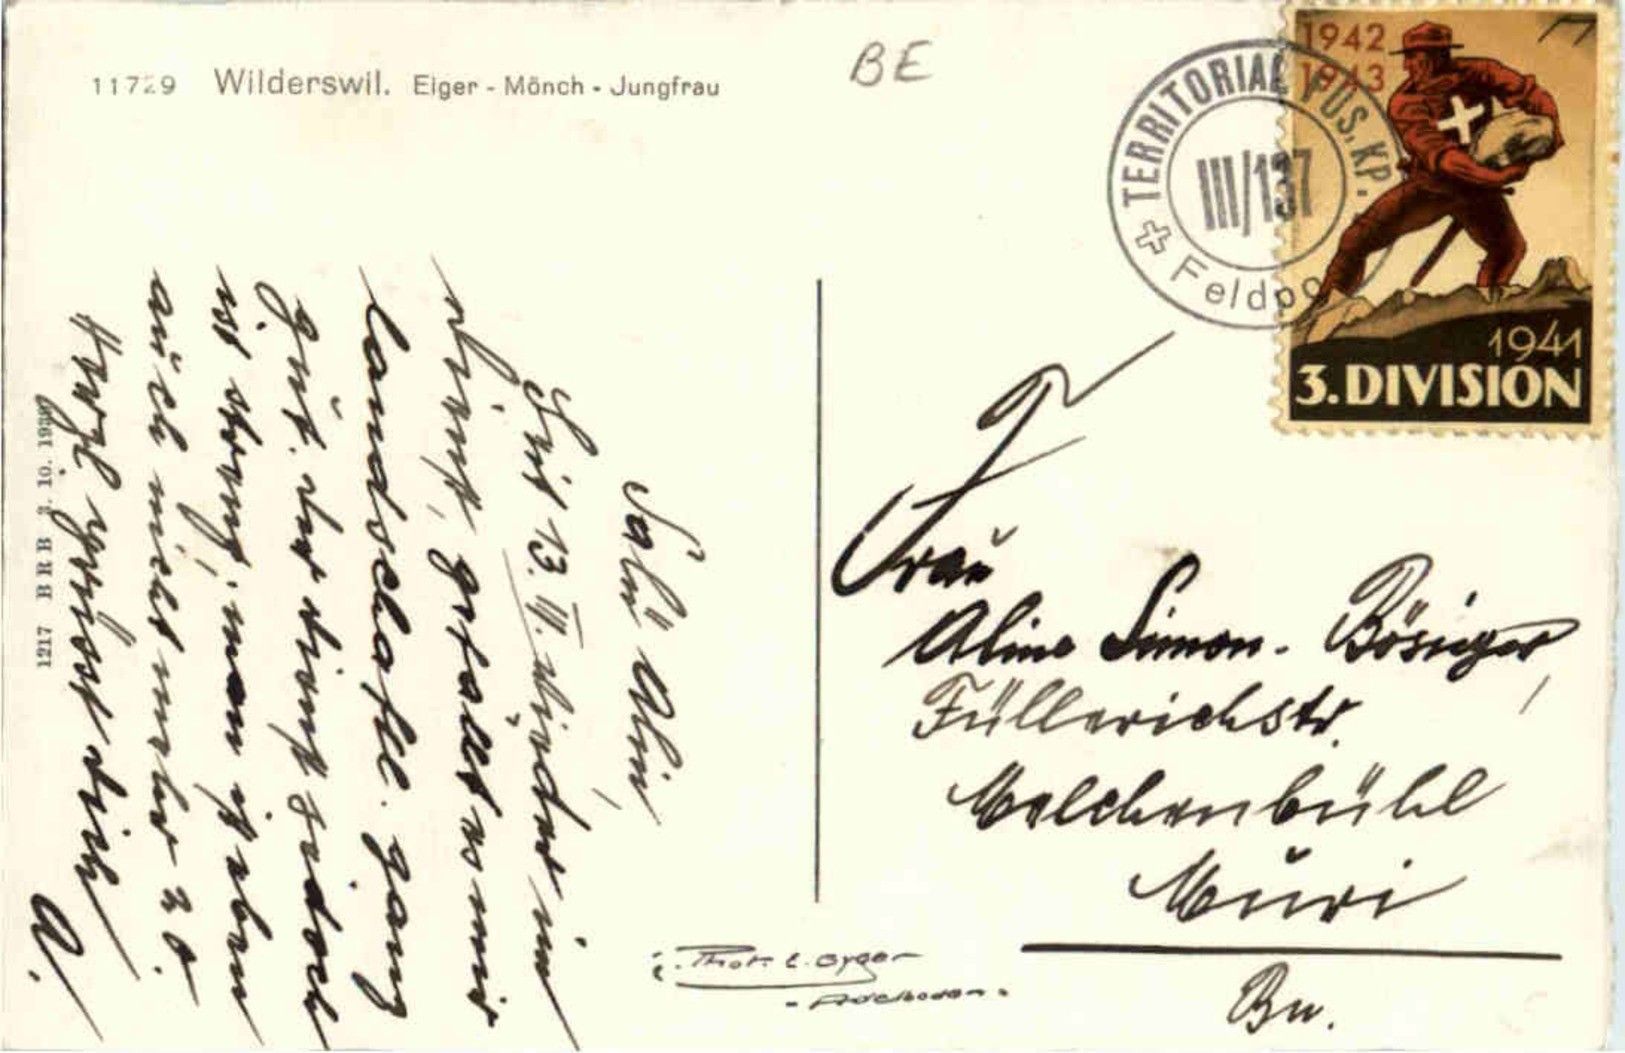 11729 Wilderswil. Eiger - Mönch - Jungfrau
BE
TERRITORIAL FUS. KP.
III/137
Feldpo
1942
1943
1941
3. DIVISION
Salü Alin,
Seit 13. III. wieder im
Dienst, gefällt es mir
landschaftl. ganz
gut. der dienst jedoch
ist streng, man ist eben
auch nicht mehr 20.
Herzl. grüsst dich
A.
1217 BRB 3. 10. 1939
Frau
Aline Simon-Bösiger,
Füllerichstr.
Melchenbühl
Muri
Bn.
Phot. E. Gyger
- Adelboden -